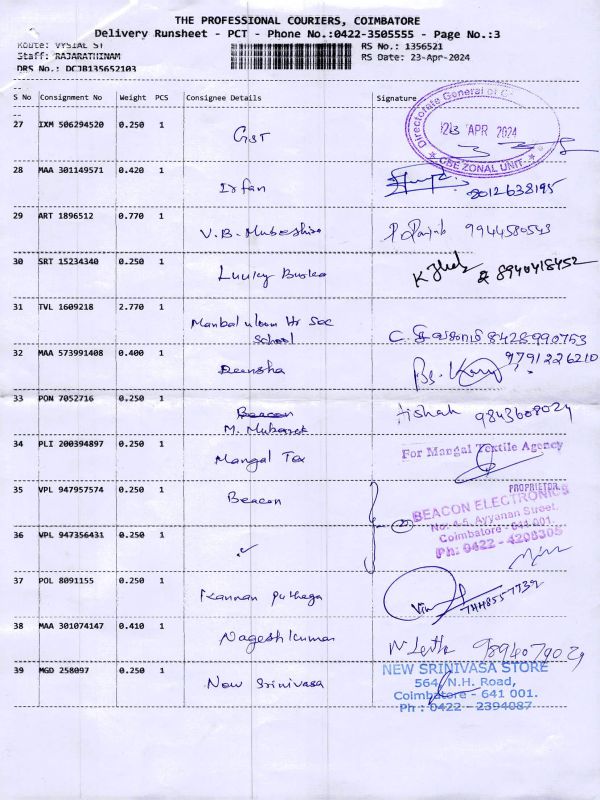 THE PROFESSIONAL COURIERS, COIMBATORE
Delivery Runsheet - PCT - Phone No.:0422-3505555 - Page No.:3
Route: VYSIAL ST
RS No.: 1356521
Staff: RAJARATHINAM
RS Date: 23-Apr-2024
DRS No.: DCJB135652103
S No Consignment No Weight PCS Consignee Details Signature
27 IXM 506294520 0.250 1 GST
Directorate General of
23 APR 2024
★ CBE ZONAL UNIT. ★
28 MAA 301149571 0.420 1 Irfan 2012638195
29 ART 1896512 0.770 1 V.B. Mubeshira 9944580543
30 SRT 15234340 0.250 1 8940418452
31 TVL 1609218 2.770 1 Hr Sec
School 8428990753
32 MAA 573991408 0.400 1 Deensha 9791226210
33 PON 7052716 0.250 1 Beacon
M. Mubarak Aishah 9843608024
34 PLI 200394897 0.250 1 Mangal Tex For Mangal Textile Agency
PROPRIETOR
35 VPL 947957574 0.250 1 Beacon
BEACON ELECTRONICS
No: 4-5, Ayyanan Street,
Coimbatore - 641 001.
Ph: 0422 - 4208305
36 VPL 947356431 0.250 1 ✓
37 POL 8091155 0.250 1 Kannan Puthaga
38 MAA 301074147 0.410 1 Nagesh kumar 9894079029
39 MGD 258097 0.250 1 New Srinivasa
NEW SRINIVASA STORE
564, N.H. Road,
Coimbatore - 641 001.
Ph : 0422 - 2394087